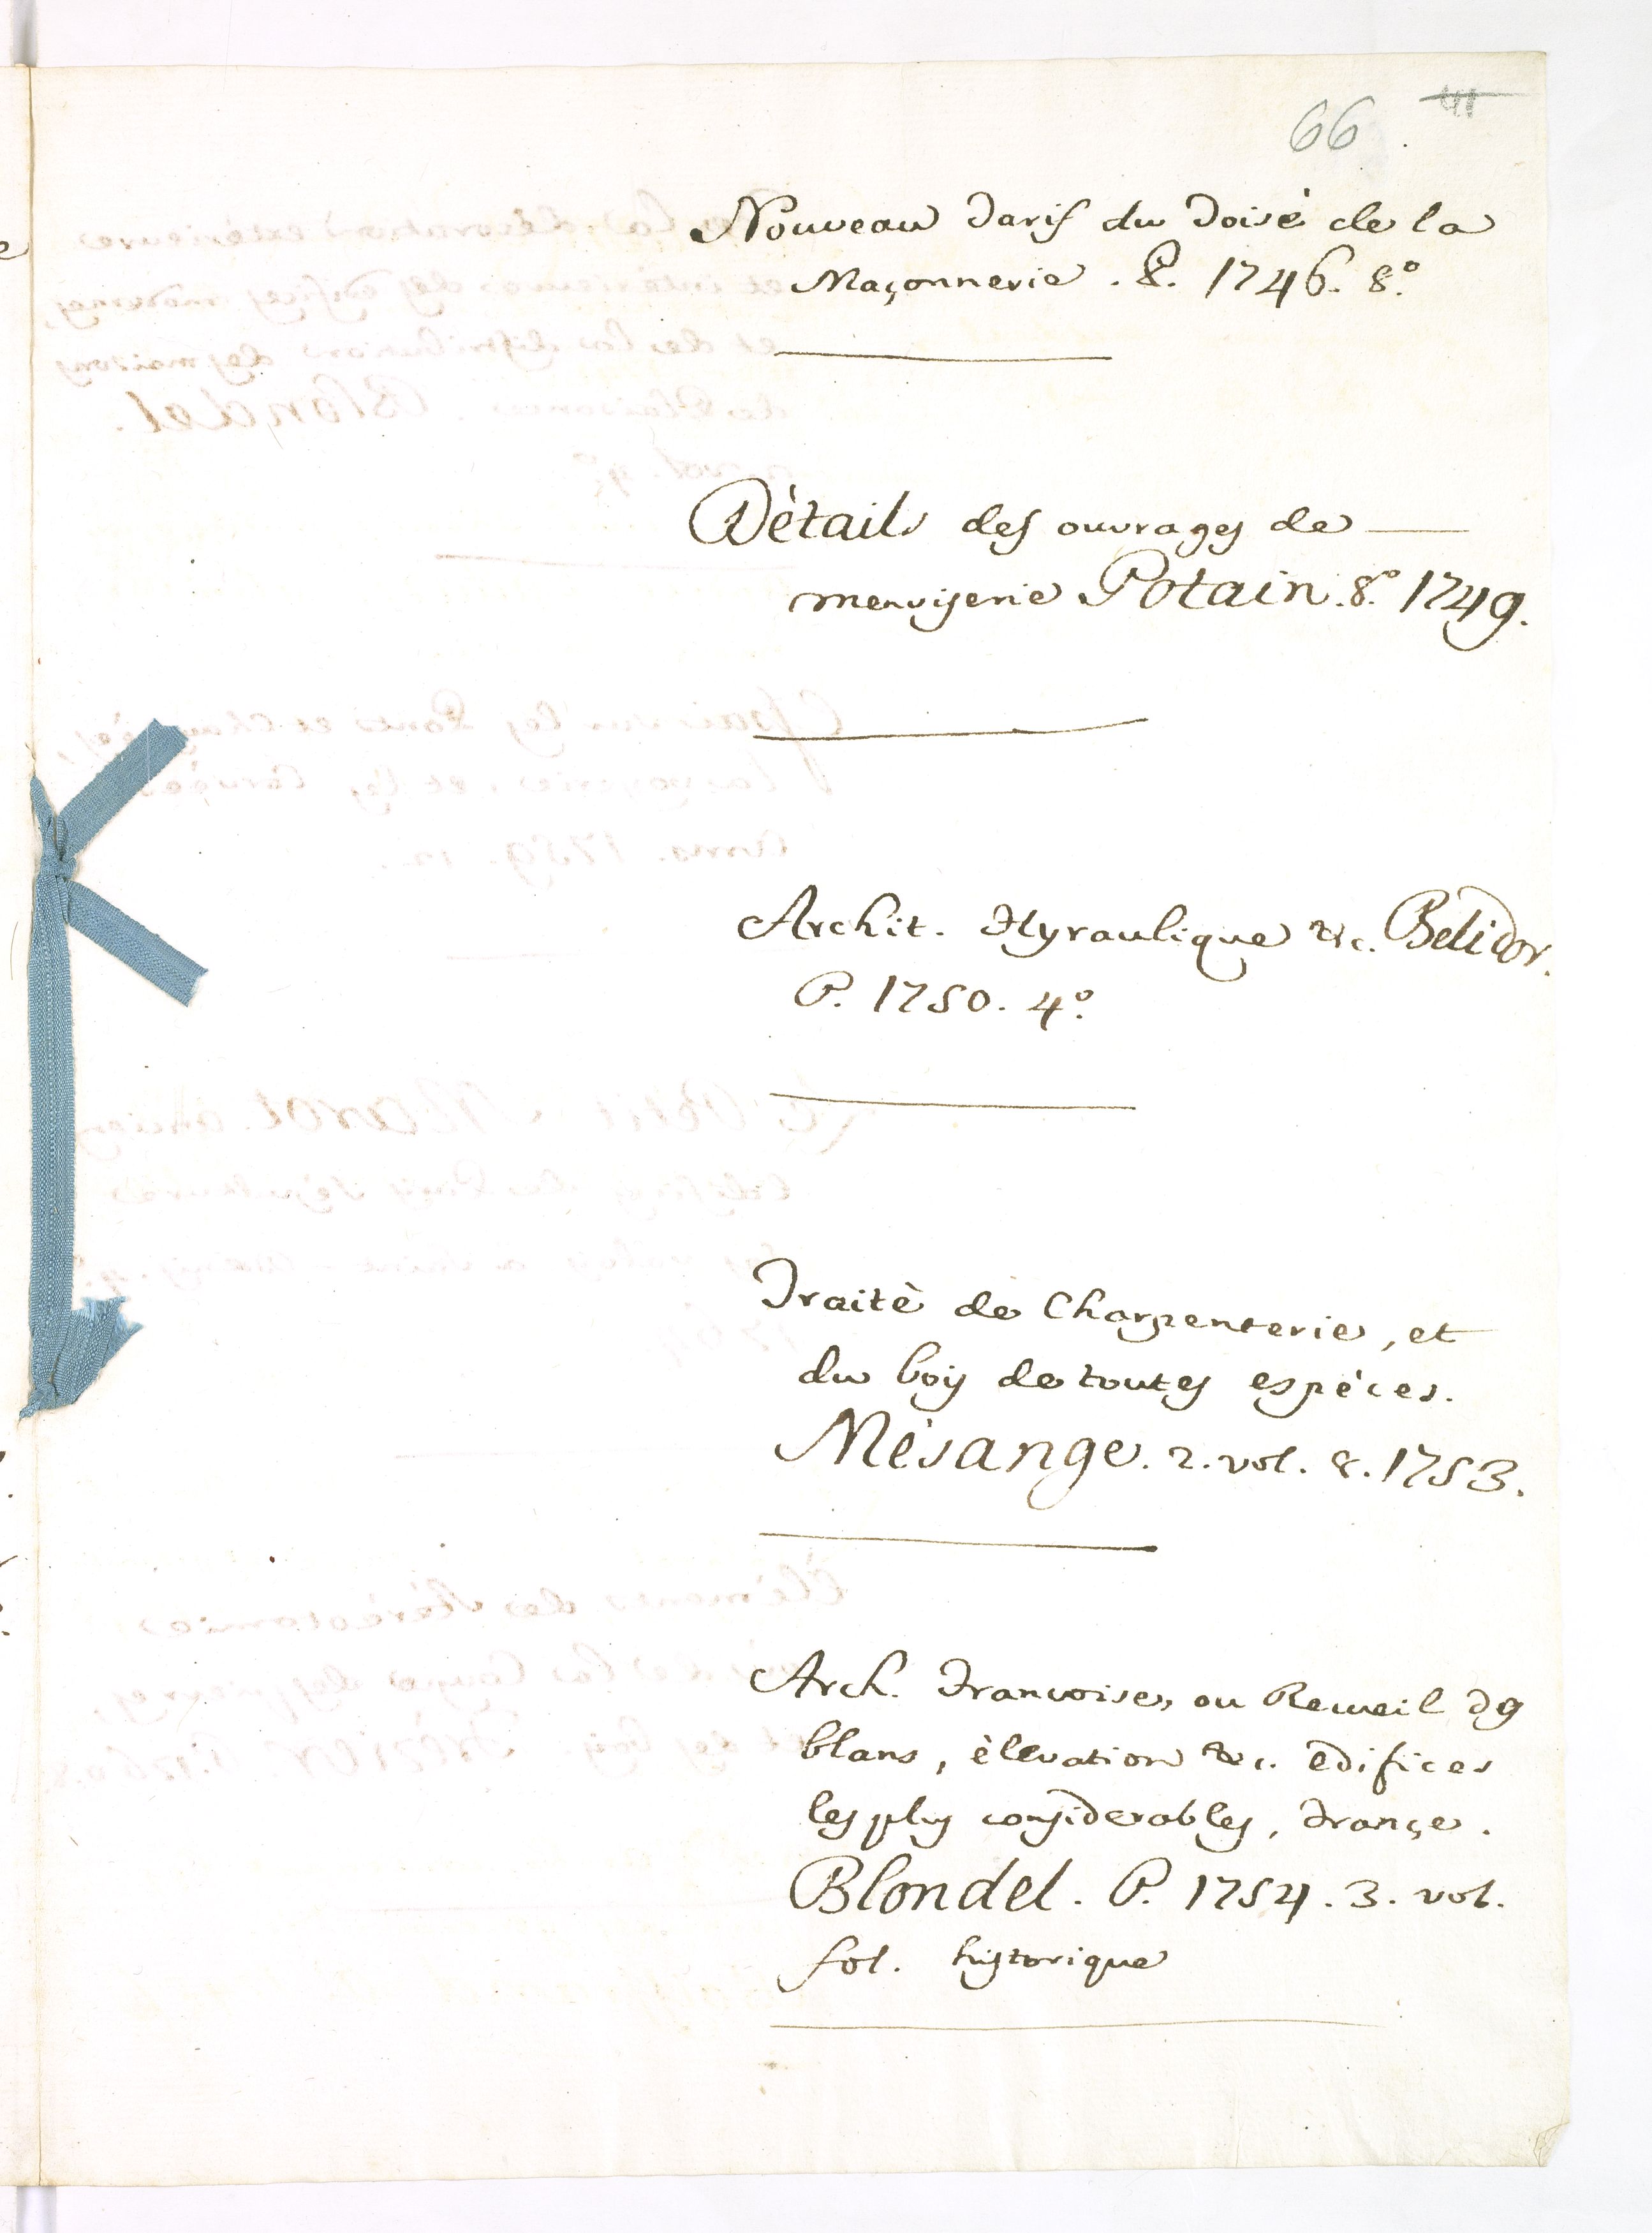 66 41
Nouveau Tarif du Toisé de la
Maçonnerie. P. 1746. 8.º
Dètails des ouvrages de —
menuiserie Potain. 8.º 1749.
Archit. Hyraulique &c. Belidor.
P. 1750. 4.º
Traitè de Charpenterie, et
du bois de toutes espèces.
Mèsange. 2. vol. 8. 1753.
Arch. Francoise, ou Recueil des
blans, èlevation &c. edifices
les plus considerables, Françe.
Blondel. P. 1754. 3. vol.
fol. historique